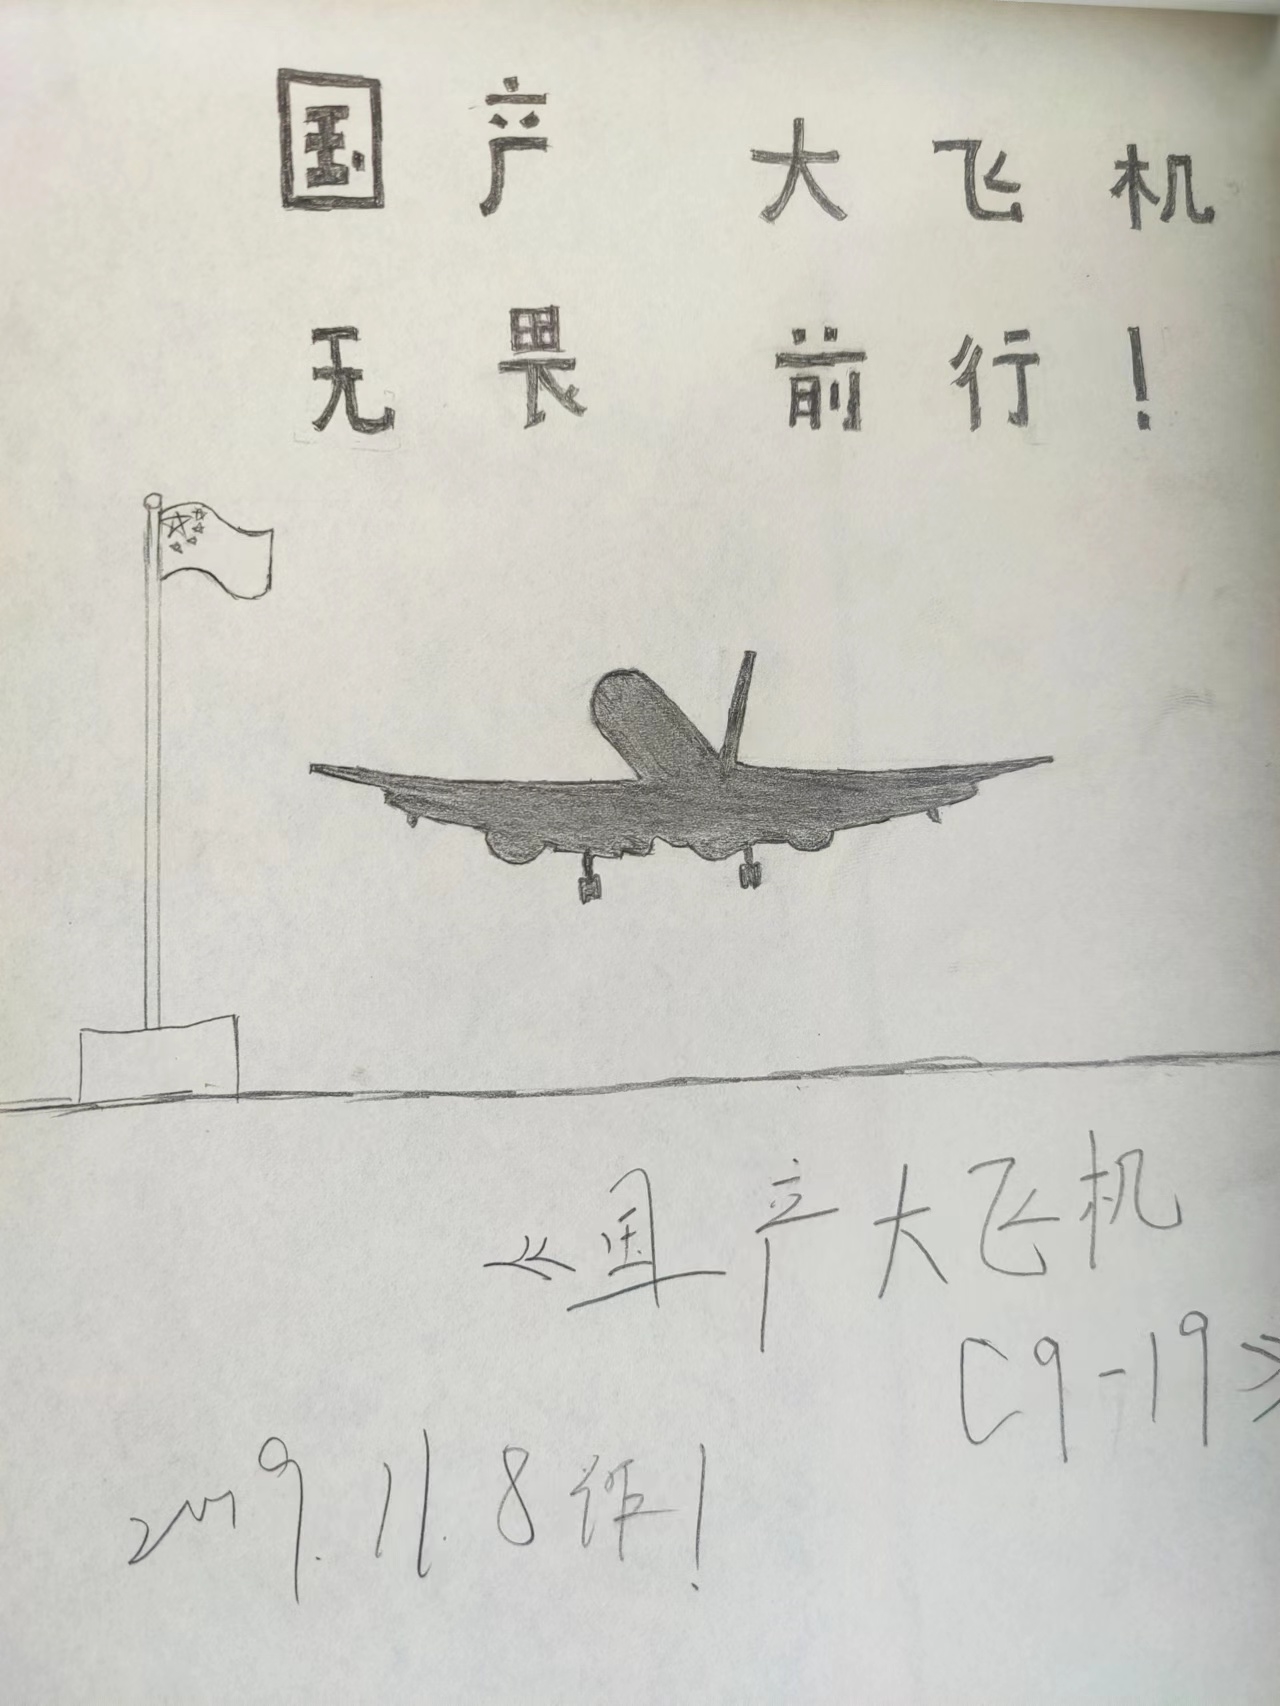 国产 大飞机
无畏 前行!
《国产大飞机
C9-19》
2019.11.8作!